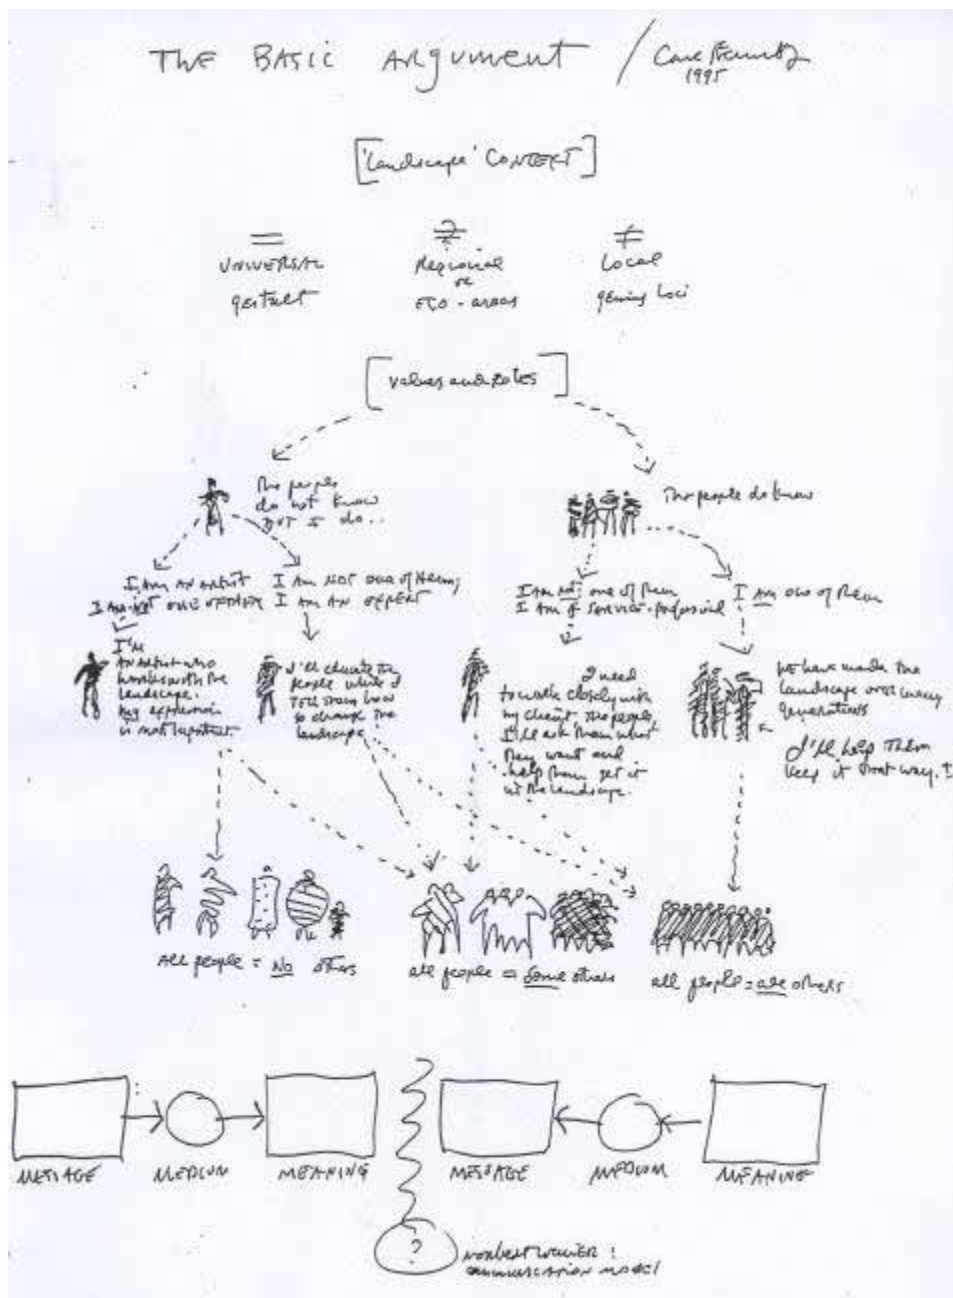 THE BASIC ArgumenT / Carl Steinitz
1995
['Landscape' CONTEXT]
=
UNIVERSAL
gestalt
Regional
or
ECO-areas
≠
Local
genius loci
[values and roles]
The people
do not know
BUT I do..
The people do know
I AM AN ARTIST
I AM NOT ONE OF THEM
I AM NOT one of them,
I AM AN EXPERT
I am not one of them
I am a service-professional
I am one of them
I'll
AN artist who
works with the
landscape.
My expression
is most important.
I'll educate the
people while I
TELL them how
to change the
landscape
I need
to work closely with
my client, the people,
I'll ask them what
they want and
help them get it
in the landscape.
We have made the
landscape over many
generations
I'll help them
keep it that way.
ALL people = NO others
all people = Some others
all people = are others
MESSAGE
MEDIUM
MEANING
MESSAGE
MEDIUM
MEANING
?
norbert wiener:
communication model